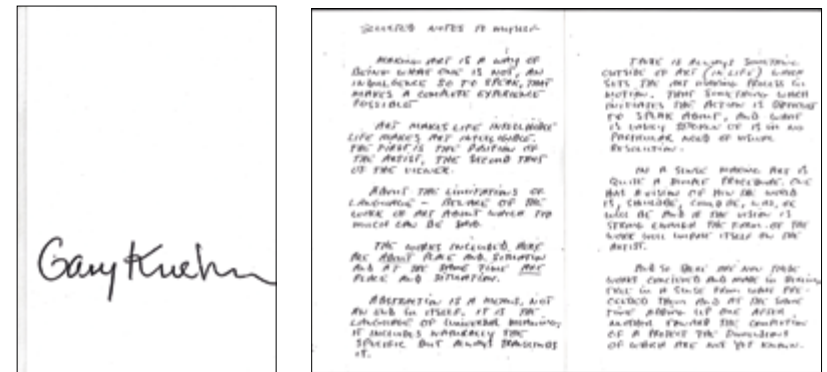 Gary Kuehn
SELECTED NOTES TO MYSELF
MAKING ART IS A WAY OF
BEING WHAT ONE IS NOT, AN
INDULGENCE SO TO SPEAK, THAT
MAKES A COMPLETE EXPERIENCE
POSSIBLE
ART MAKES LIFE INTELLIGIBLE
LIFE MAKES ART INTELLIGIBLE.
THE FIRST IS THE POSITION OF
THE ARTIST, THE SECOND THAT
OF THE VIEWER.
ABOUT THE LIMITATIONS OF
LANGUAGE – BEWARE OF THE
WORK OF ART ABOUT WHICH TOO
MUCH CAN BE SAID.
THE WORKS INCLUDED HERE
ARE ABOUT PLACE AND SITUATION
AND AT THE SAME TIME ARE
PLACE AND SITUATION.
ABSTRACTION IS A MEANS, NOT
AN END IN ITSELF. IT IS THE
LANGUAGE OF UNIVERSAL MEANING,
IT INCLUDES NATURALLY THE
SPECIFIC BUT ALWAYS TRANSCENDS
IT.
THERE IS ALWAYS SOMETHING
OUTSIDE OF ART (IN LIFE) WHICH
SETS THE ART MAKING PROCESS IN
MOTION. THAT SOMETHING WHICH
INITIATES THE ACTION IS DIFFICULT
TO SPEAK ABOUT, AND WHAT
IS EASILY SPOKEN OF IS IN NO
PARTICULAR NEED OF VISUAL
RESOLUTION.
IN A SENSE MAKING ART IS
QUITE A SIMPLE PROCEDURE. ONE
HAS A VISION OF HOW THE WORLD
IS, SHOULD BE, COULD BE, WAS, OR
WILL BE AND IF THE VISION IS
STRONG ENOUGH THE FORM OF THE
WORK WILL IMPOSE ITSELF ON THE
ARTIST.
AND SO HERE ARE NOW THESE
WORKS CONCEIVED AND MADE IN
IN A SENSE FROM WHAT PRE-
CEEDED THEM AND AT THE SAME
TIME ADDING UP ONE AFTER
ANOTHER TOWARD THE COMPLETION
OF A PROJECT THE DIMENSIONS
OF WHICH ARE NOT YET KNOWN.